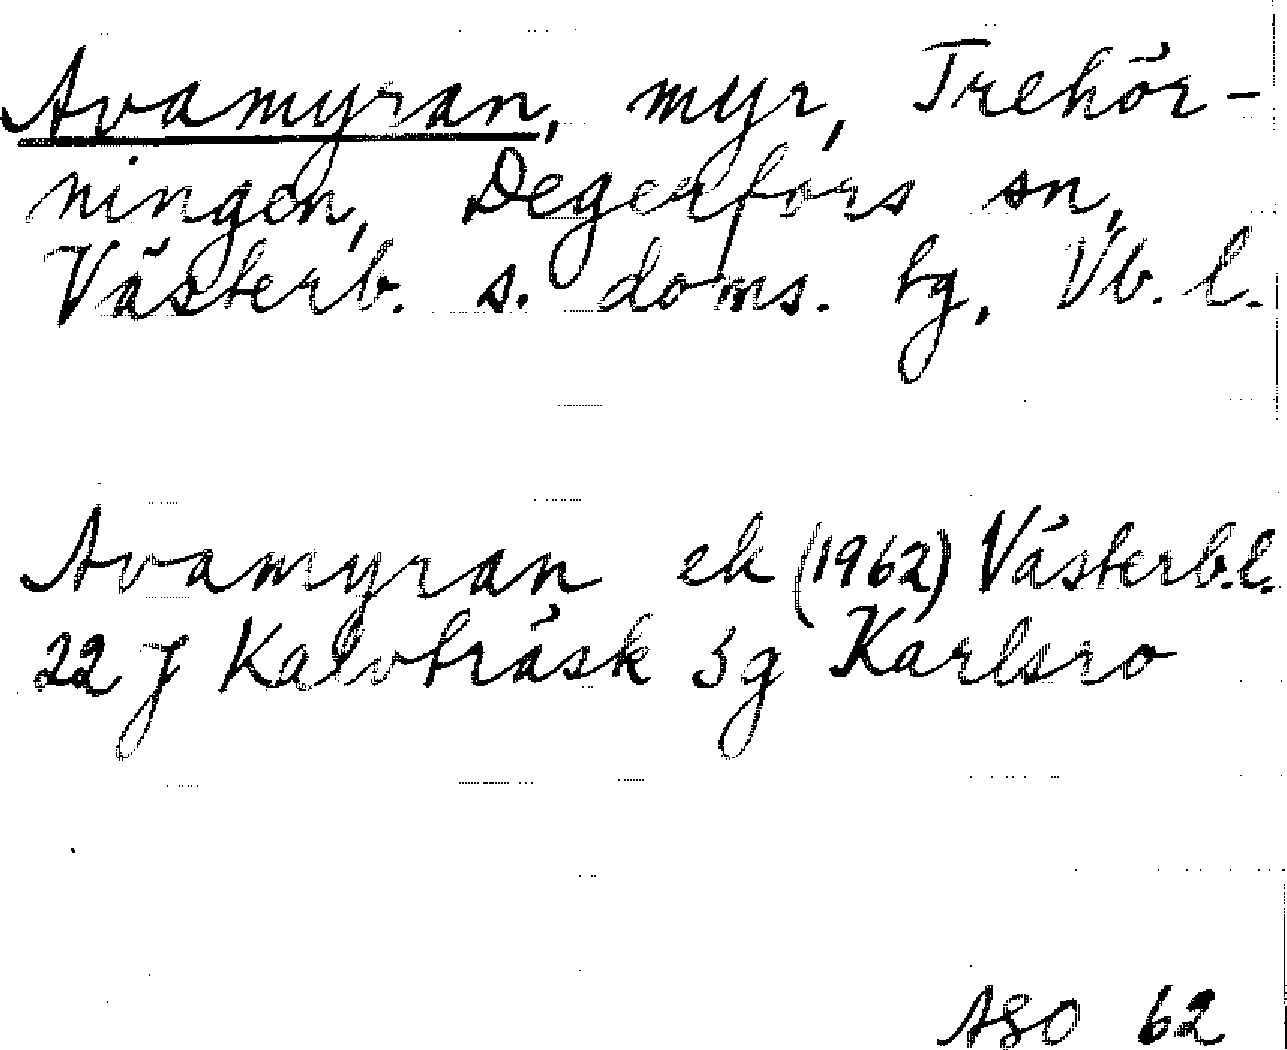 Avamyran, myr, Trehör-
ningen, Degerfors sn,
Västerb. s. doms. tg, Vb. l.
Avamyran ek (1962) Västerb.l.
22 J Kalvträsk 5g Karlsro
ASO 62